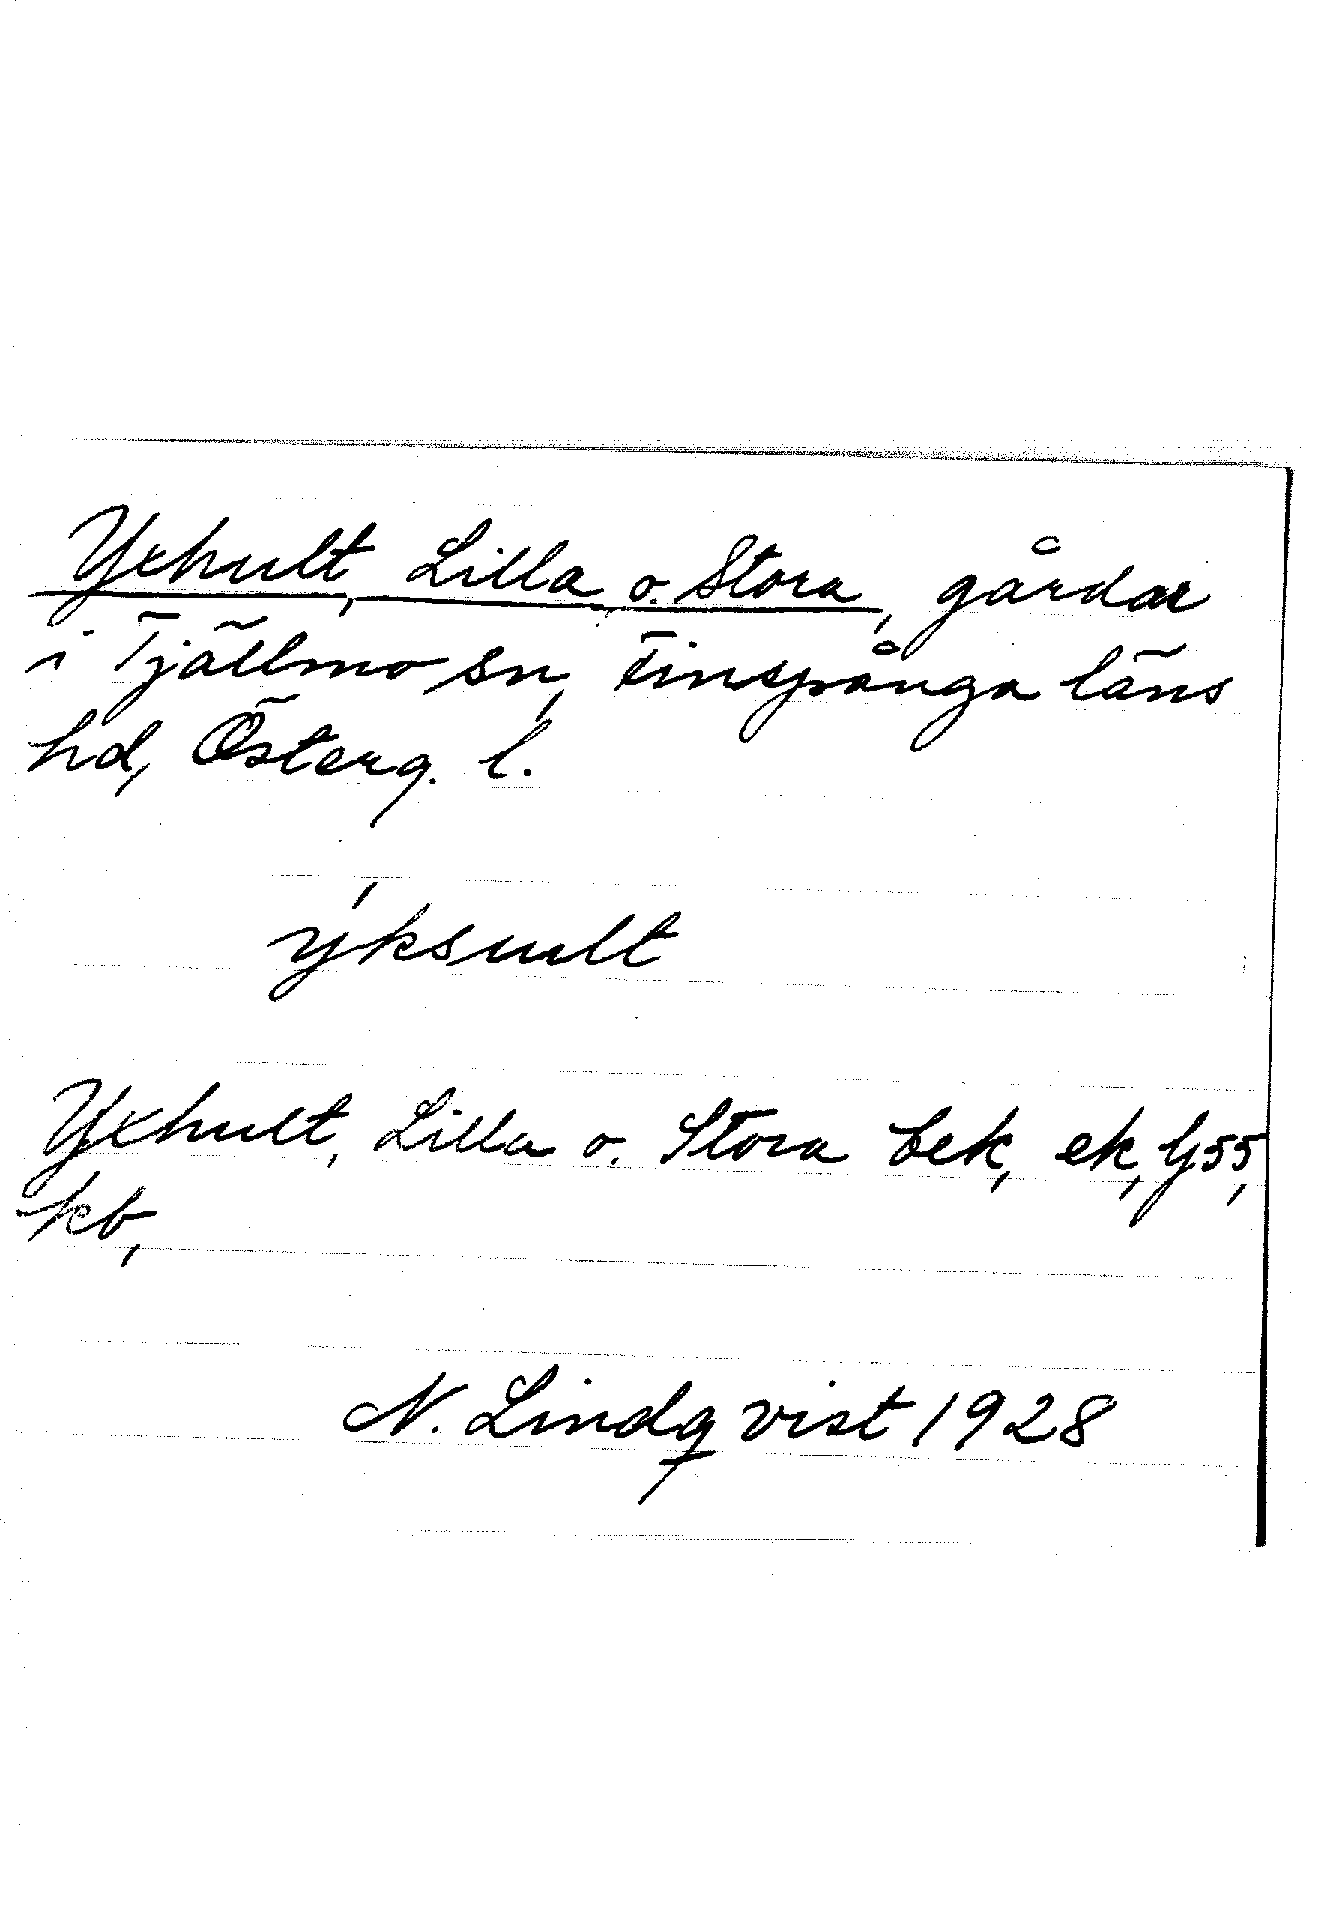 Yxhult, Lilla o. Stora, gårdar
i Tjällmo sn, Finspånga läns
hd, Österg. l.
ýksult
Yxhult, Lilla o. Stora bek, ek, Gj55,
kb,
N. Lindqvist 1928